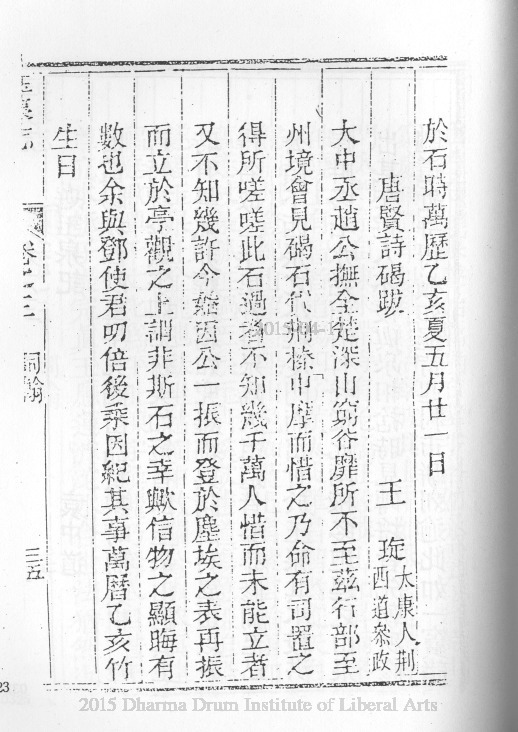 於石時萬歷乙亥夏五月廿一日
唐賢詩碣跋 王 琁 太康人荆西道叅政
大中丞趙公撫全楚深山窮谷靡所不至茲行部至
州境會見碣石伏荆榛中摩而惜之乃命有司置之
得所嗟嗟此石過者不知幾千萬人惜而未能立者
又不知幾許今始因公一振而登於塵埃之表再振
而立於亭觀之上詎非斯石之幸歟信物之顯晦有
數也余與鄧使君叨倍後乘因紀其事萬曆乙亥竹
生日
卷之三 詞翰
三五
23
2015 Dharma Drum Institute of Liberal Arts